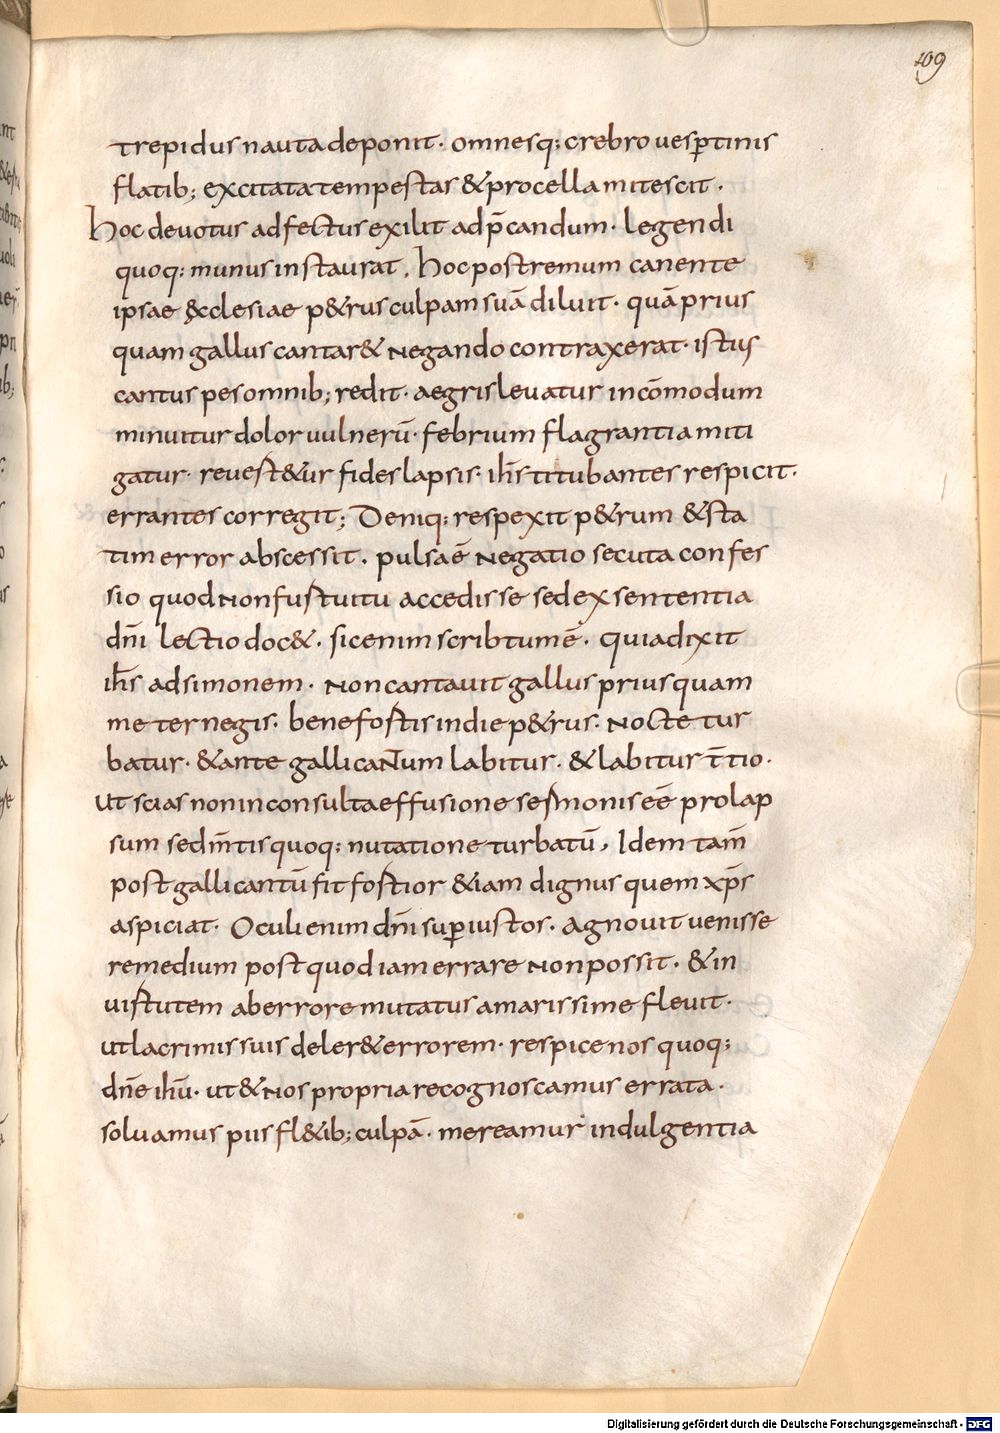 109
trepidus nauta deponit. omnesq: crebro uesptinis
flatib; excitata tempestas & procella mitescit.
hoc deuotus adfectus exilit ad p̄candum. legendi
quoq: munus instaurat. hoc postremum canente
ipsae ęcclesiae p&rus culpam suā diluit. quā prius
quam gallus cantar& negando contraxerat. istius
cantus pes omnib; redit. aegris leuatur incōmodum
minuitur dolor uulnerū. febrium flagrantia miti
gatur. reuest&ur fides lapsis. ih̄s titubantes respicit.
errantes corregit; Deniq: respexit p&rum & sta
tim error abscessit. pulsa ē negatio secuta confes
sio quod non fustuitu accedisse sed ex sententia
dn̄i lectio doc&. sic enim scribtum ē. quia dixit
ih̄s ad simonem. non cantauit gallus prius quam
me ter negis. bene fortis in die p&rus. nocte tur
batur. & ante galli cantum labitur. & labitur t̄tio.
ut scias non inconsulta effusione sermonis eē prolap
sum sed m̄tis quoq: nutatione turbatū, Idem tam̄
post galli cantū fit fortior & iam dignus quem xp̄s
aspiciat. Oculi enim dn̄i sup iustos. agnouit uenisse
remedium post quod iam errare non possit. & in
uirtutem ab errore mutatus amarissime fleuit.
ut lacrimis suis deler& errorem. respice nos quoq;
dn̄e ihū. ut & nos propria recognoscamus errata.
soluamus piis fl&ib; culpā. mereamur indulgentia
Digitalisierung gefördert durch die Deutsche Forschungsgemeinschaft - DFG